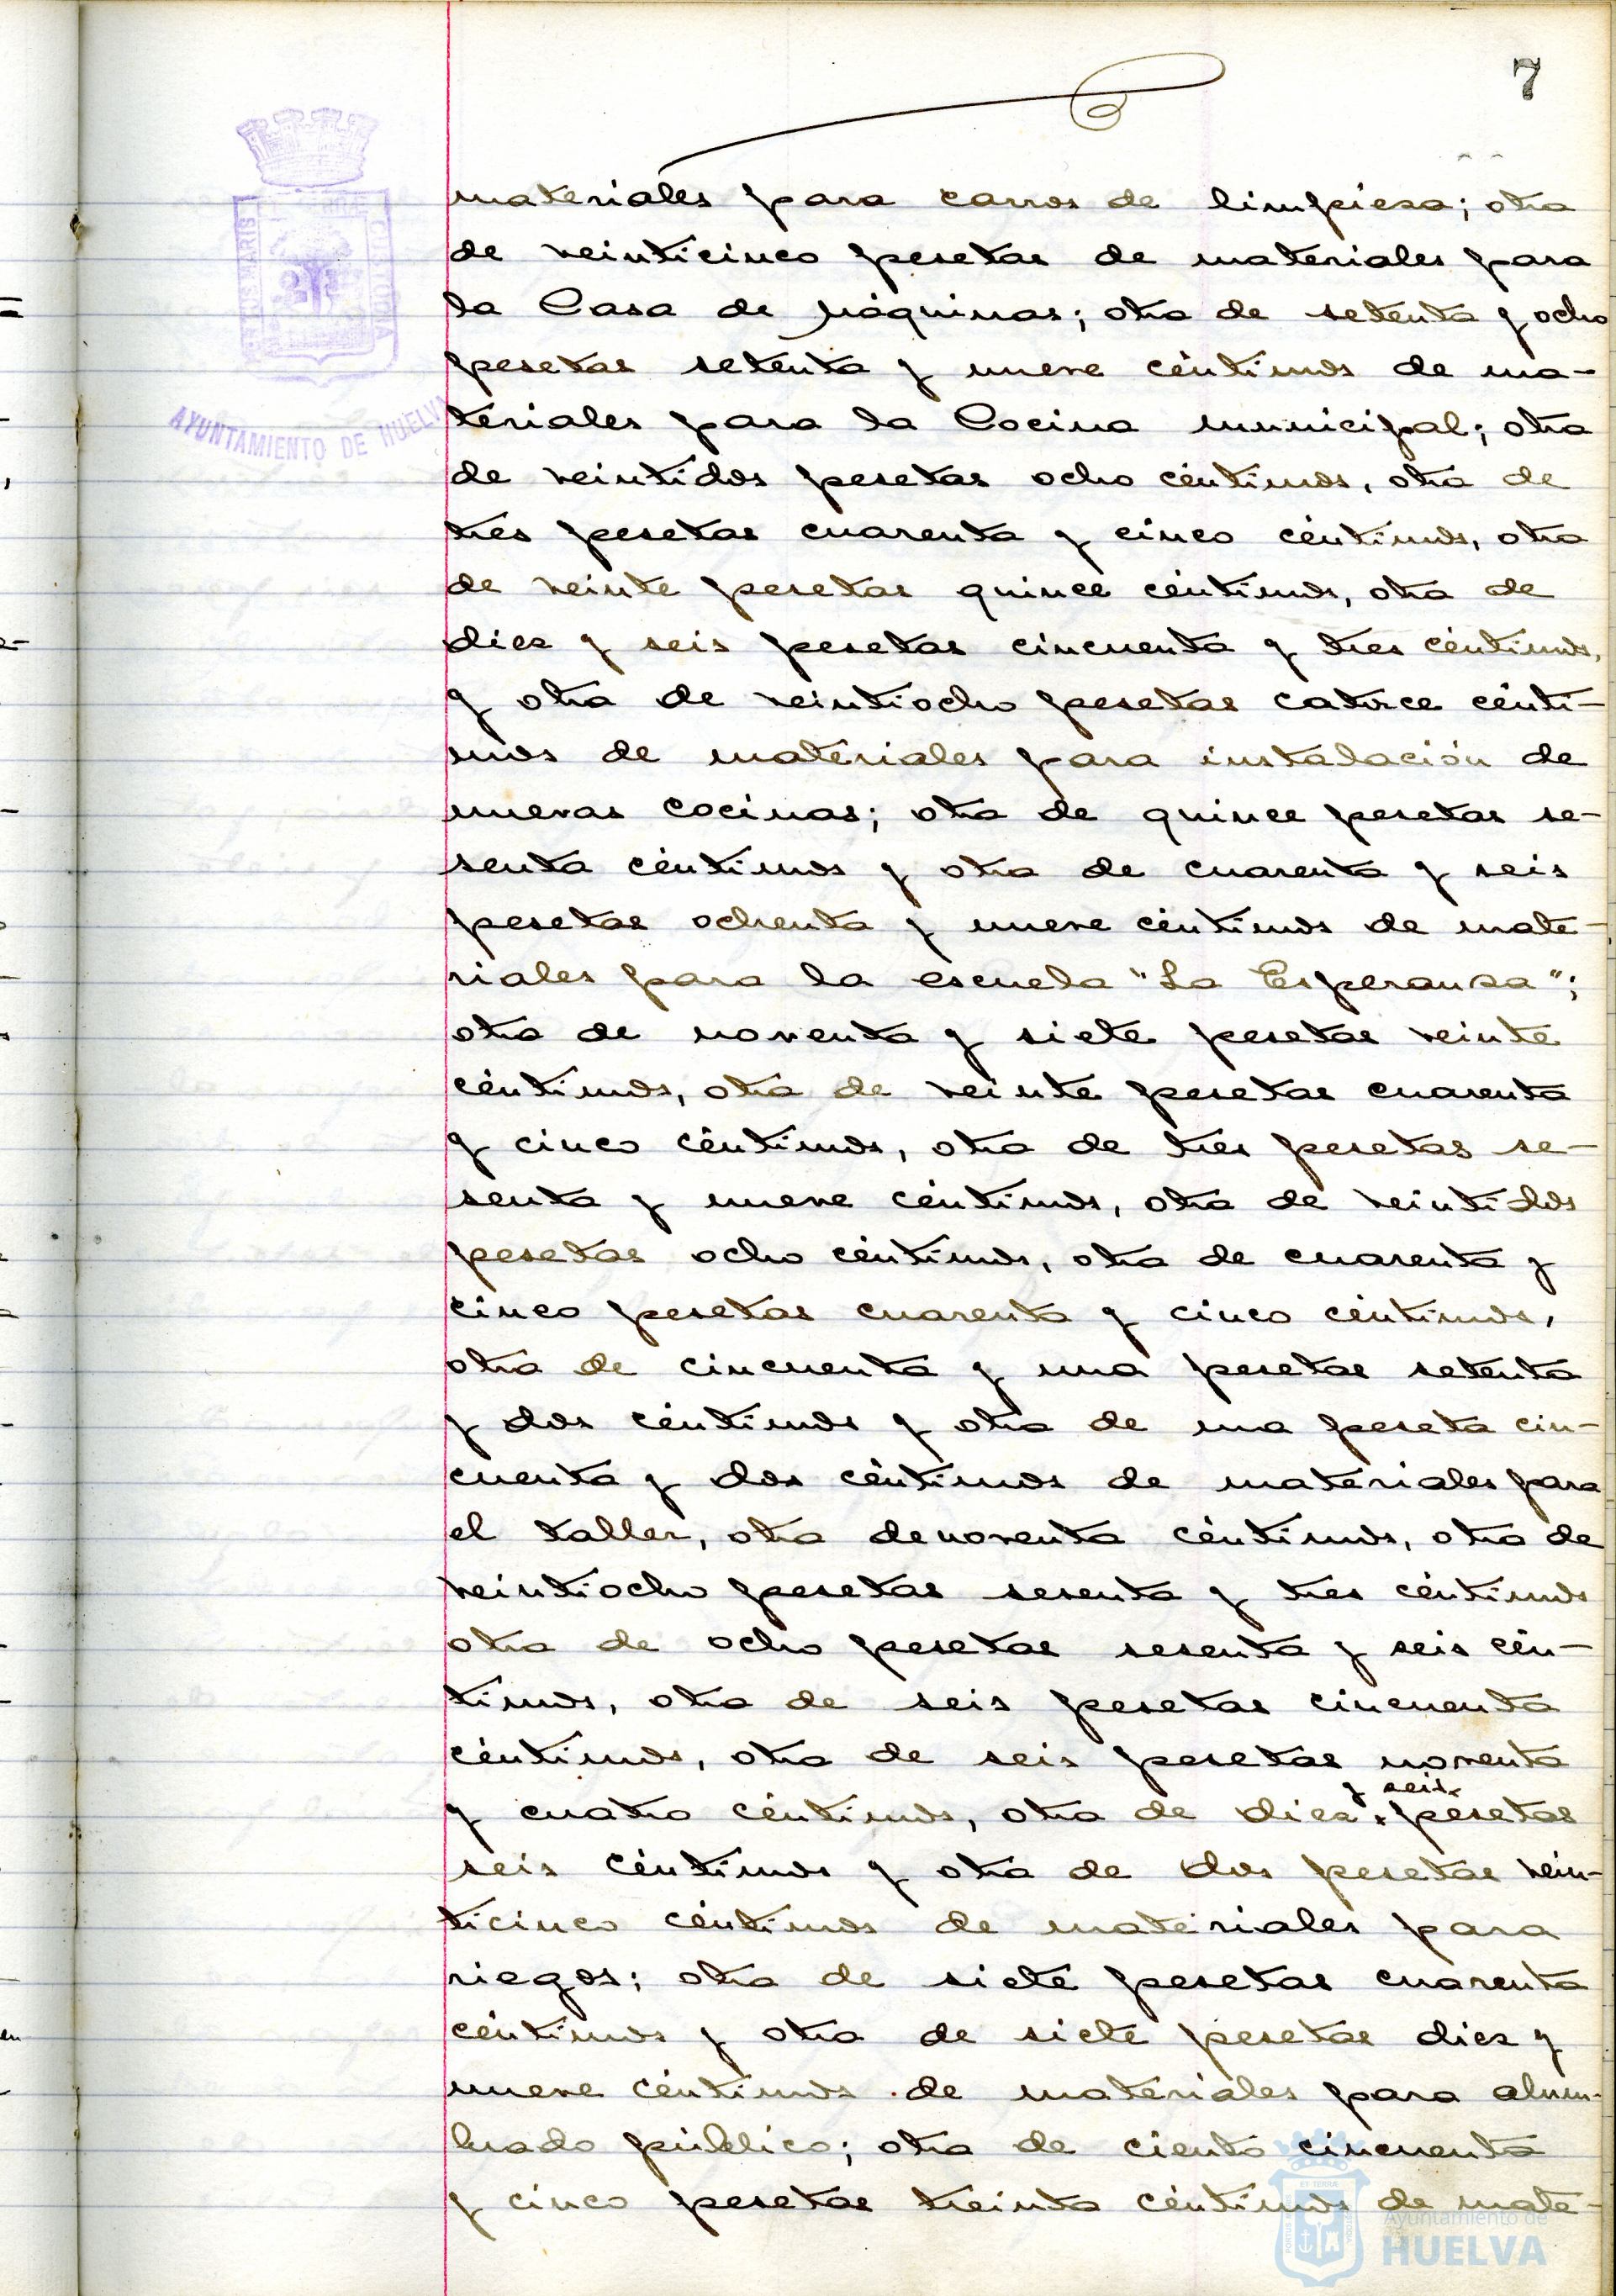 7
materiales para carros de limpieza; otra
de veinticinco pesetas de materiales para
la Casa de Máquinas; otra de setenta y ocho
pesetas setenta y nueve céntimos de ma-
teriales para la Cocina municipal; otra
de veintidos pesetas ocho céntimos, otra de
tres pesetas cuarenta y cinco céntimos, otra
de veinte pesetas quince céntimos, otra de
diez y seis pesetas cincuenta y tres céntimos,
y otra de veintiocho pesetas catorce cénti-
mos de materiales para instalación de
nuevas cocinas; otra de quince pesetas se-
senta céntimos y otra de cuarenta y seis
pesetas ochenta y nueve céntimos de mate-
riales para la escuela "La Esperanza";
otra de noventa y siete pesetas veinte
céntimos, otra de veinte pesetas cuarenta
y cinco céntimos, otra de tres pesetas se-
senta y nueve céntimos, otra de veintidos
pesetas ocho céntimos, otra de cuarenta y
cinco pesetas cuarenta y cinco céntimos,
otra de cincuenta y una pesetas setenta
y dos céntimos y otra de una peseta cin-
cuenta y dos céntimos de materiales para
el taller, otra de noventa céntimos, otra de
veintiocho pesetas sesenta y tres céntimos
otra de ocho pesetas sesenta y seis cén-
timos, otra de seis pesetas cincuenta
céntimos, otra de seis pesetas noventa
y seis
y cuatro céntimos, otra de diez pesetas
seis céntimos y otra de dos pesetas vein-
ticinco céntimos de materiales para
riegos; otra de siete pesetas cuarenta
céntimos y otra de siete pesetas diez y
nueve céntimos de materiales para alum-
brado público; otra de ciento cincuenta
y cinco pesetas treinta céntimos de mate-
AYUNTAMIENTO DE HUELVA
Ayuntamiento de
HUELVA